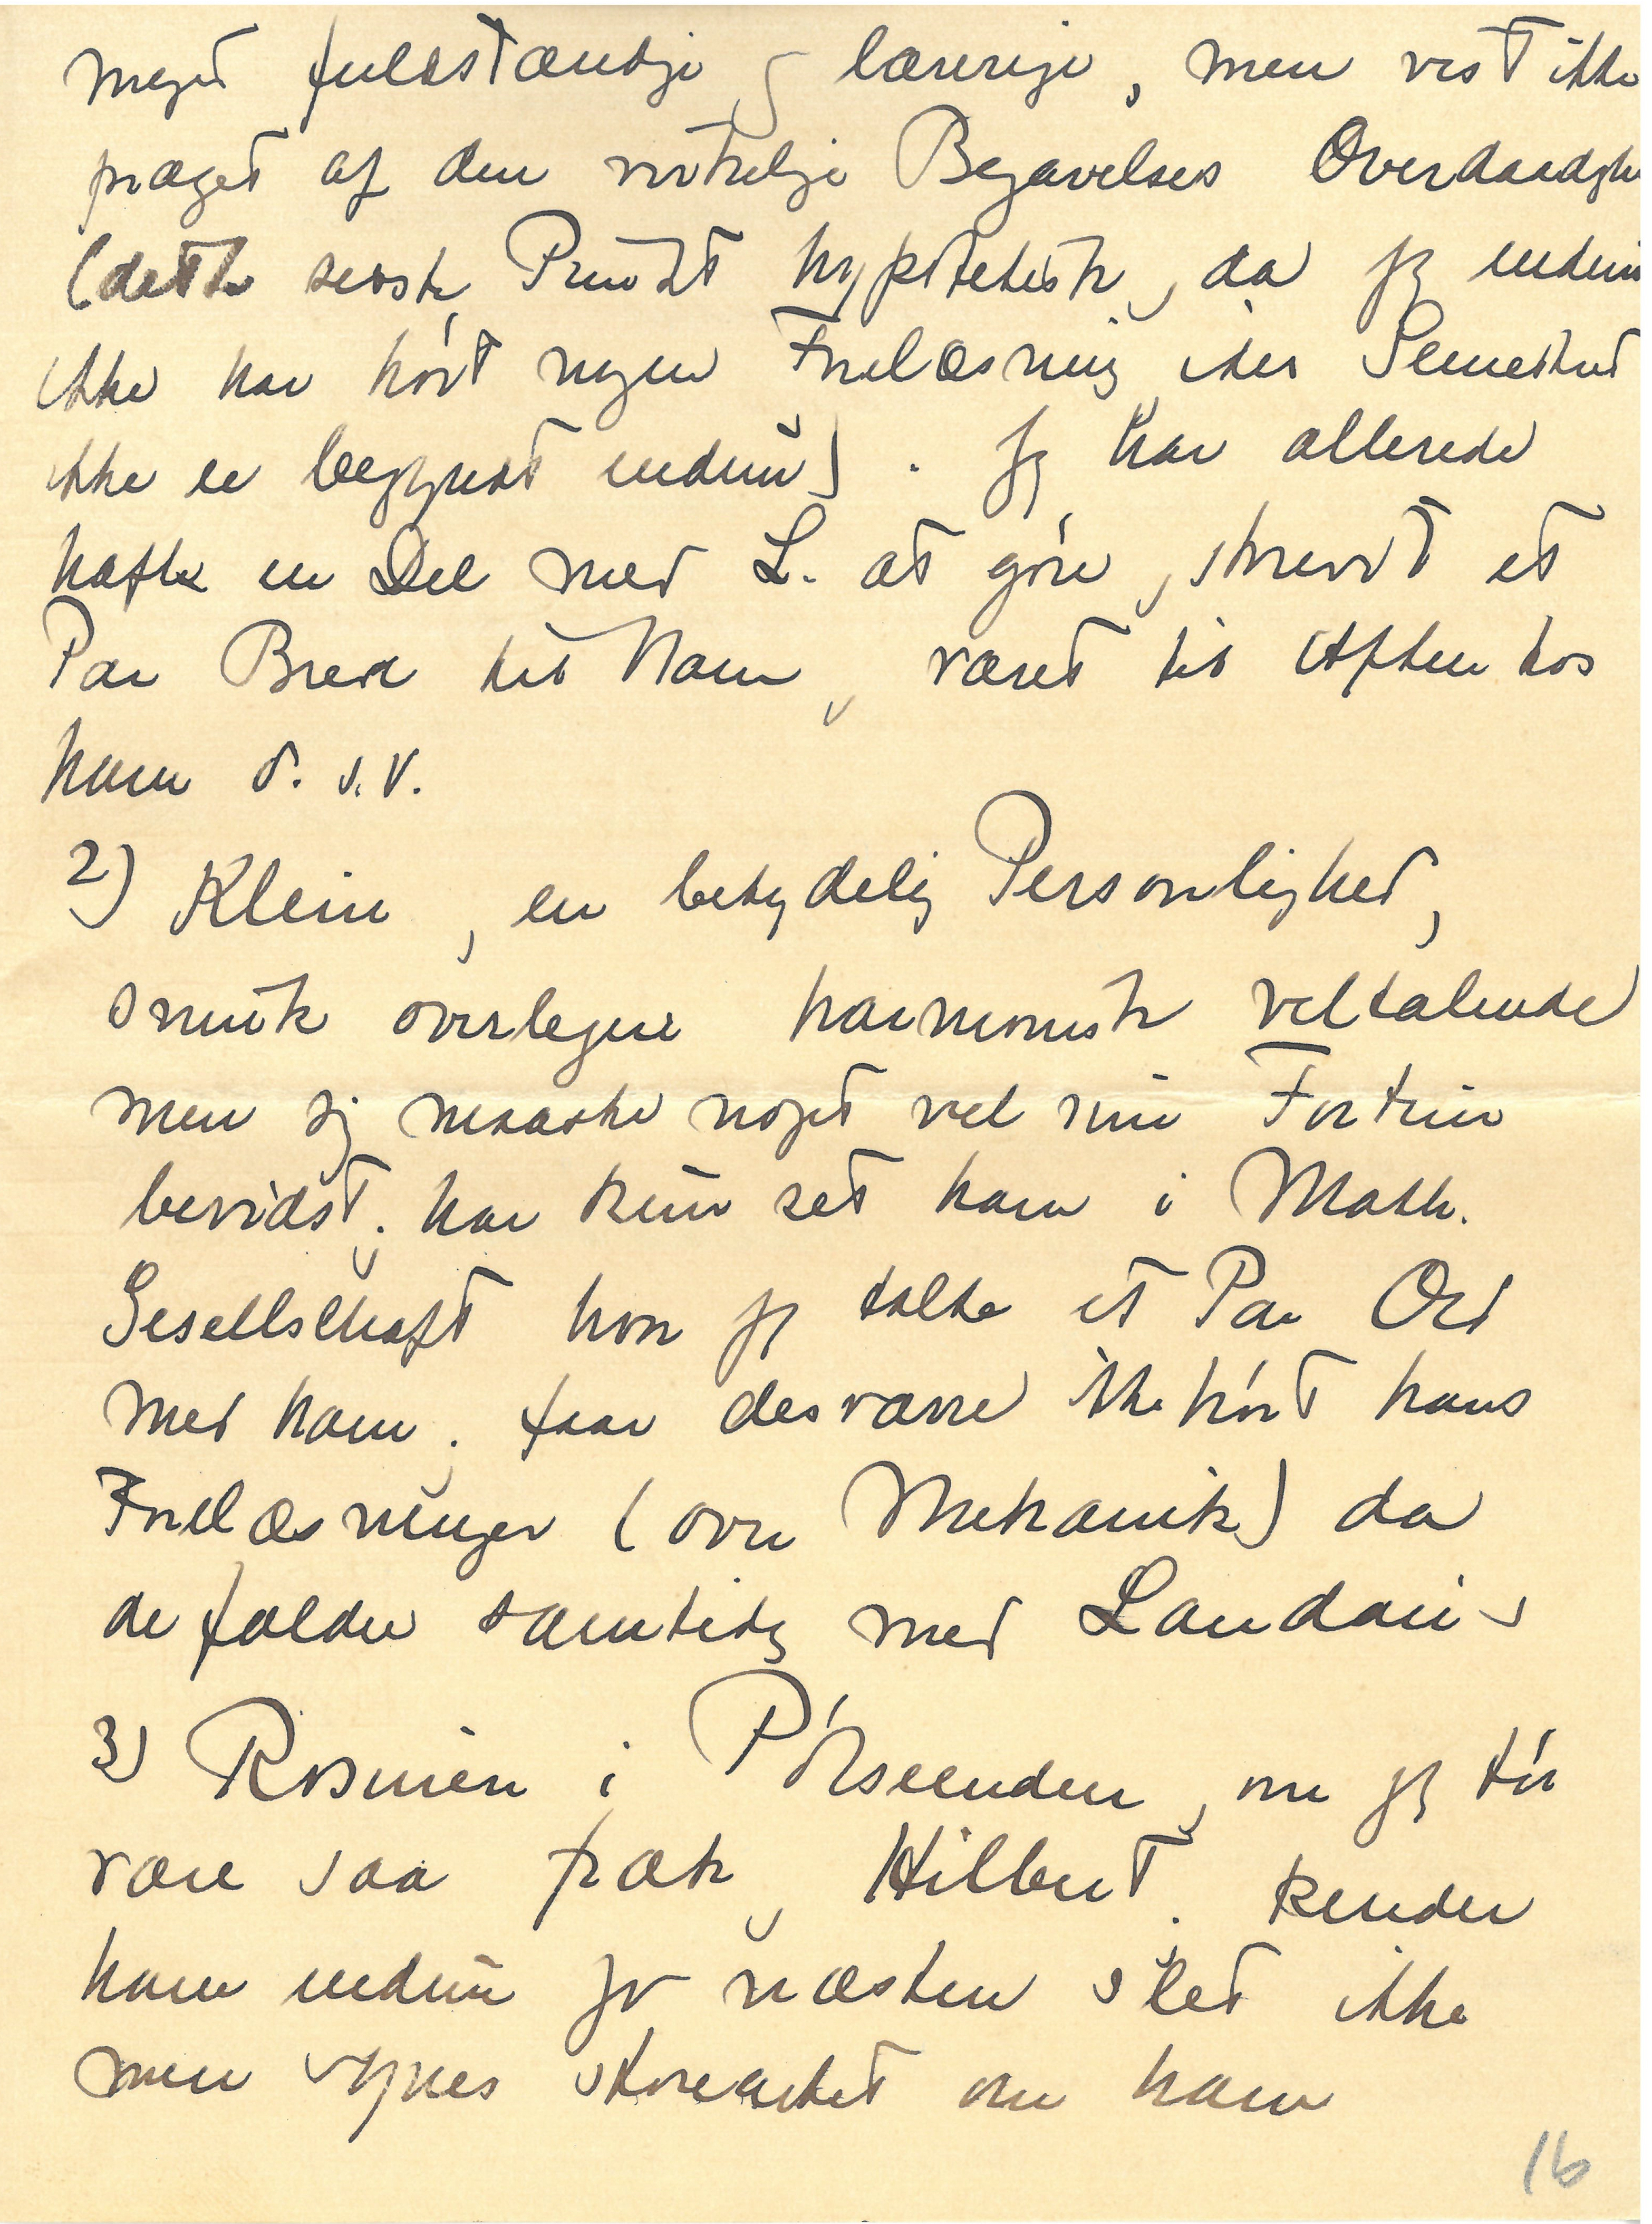 meget fuldstændige og lærerige, men vist ikke
præget af den virkelige Begavelses Overdaadighe
(dette sidste Punkt hypotetisk, da jeg endnu
ikke har hórt nogen Forelæsning idet Semestret
ikke er begyndt endnu). Jeg har allerede
hafte en Del med L. at góre, skrevet et
Par Breve til ham, været til Aften hos
ham o.s.v.
2) Klein, en betydelig Personlighed,
smuk overlegen harmonisk veltalende
men sig maaske noget vel sine Fortrin
bevidst; har kun set ham i Math.
Gesellschaft hvor jeg talte et Par Ord
med ham; faar desværre ikke hórt hans
Forelæsninger (over Mekanik) da
de falder samtidig med Landau's
3) Rosinen i Pólseenden, om jeg tór
være saa fræk, Hilbert. Kender
ham endnu jo næsten slet ikke
men synes storartet om ham
16